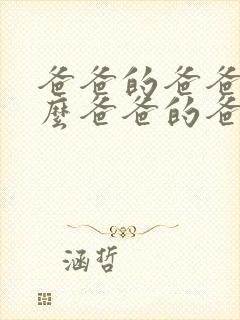 爸爸的爸爸
麼爸爸的爸
涵哲